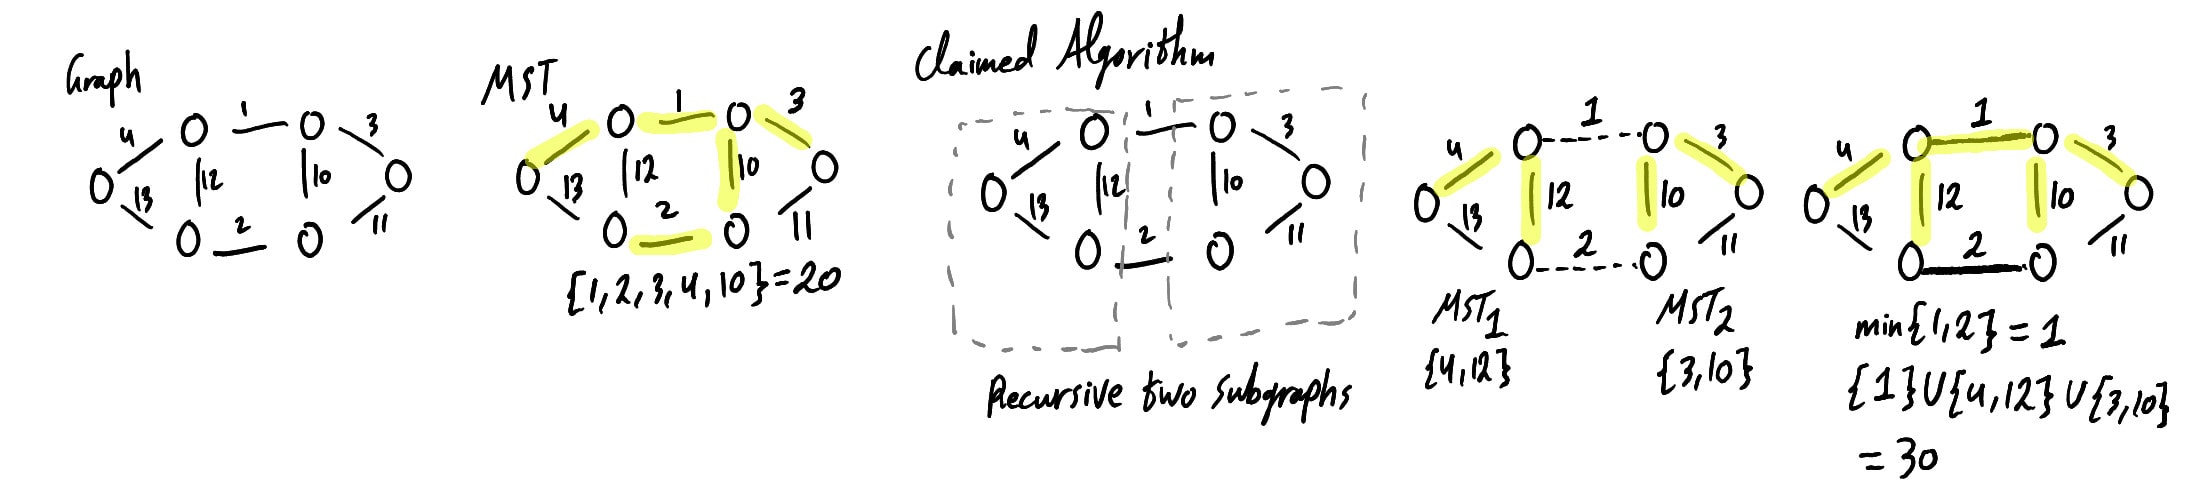 Graph
4
1
3
13
12
10
2
11
MST
4
1
3
13
12
10
2
11
{1,2,3,4,10}=20
Claimed Algorithm
4
1
3
13
12
10
2
11
Recursive two subgraphs
4
1
3
13
12
10
2
11
MST1
{4,12}
MST2
{3,10}
4
1
3
13
12
10
2
11
min{1,2}=1
{1}∪{4,12}∪{3,10}
=30